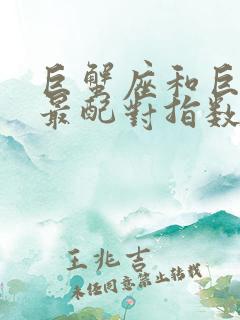 巨蟹座和巨
最配對指数
王兆吉
未经同意禁止转载